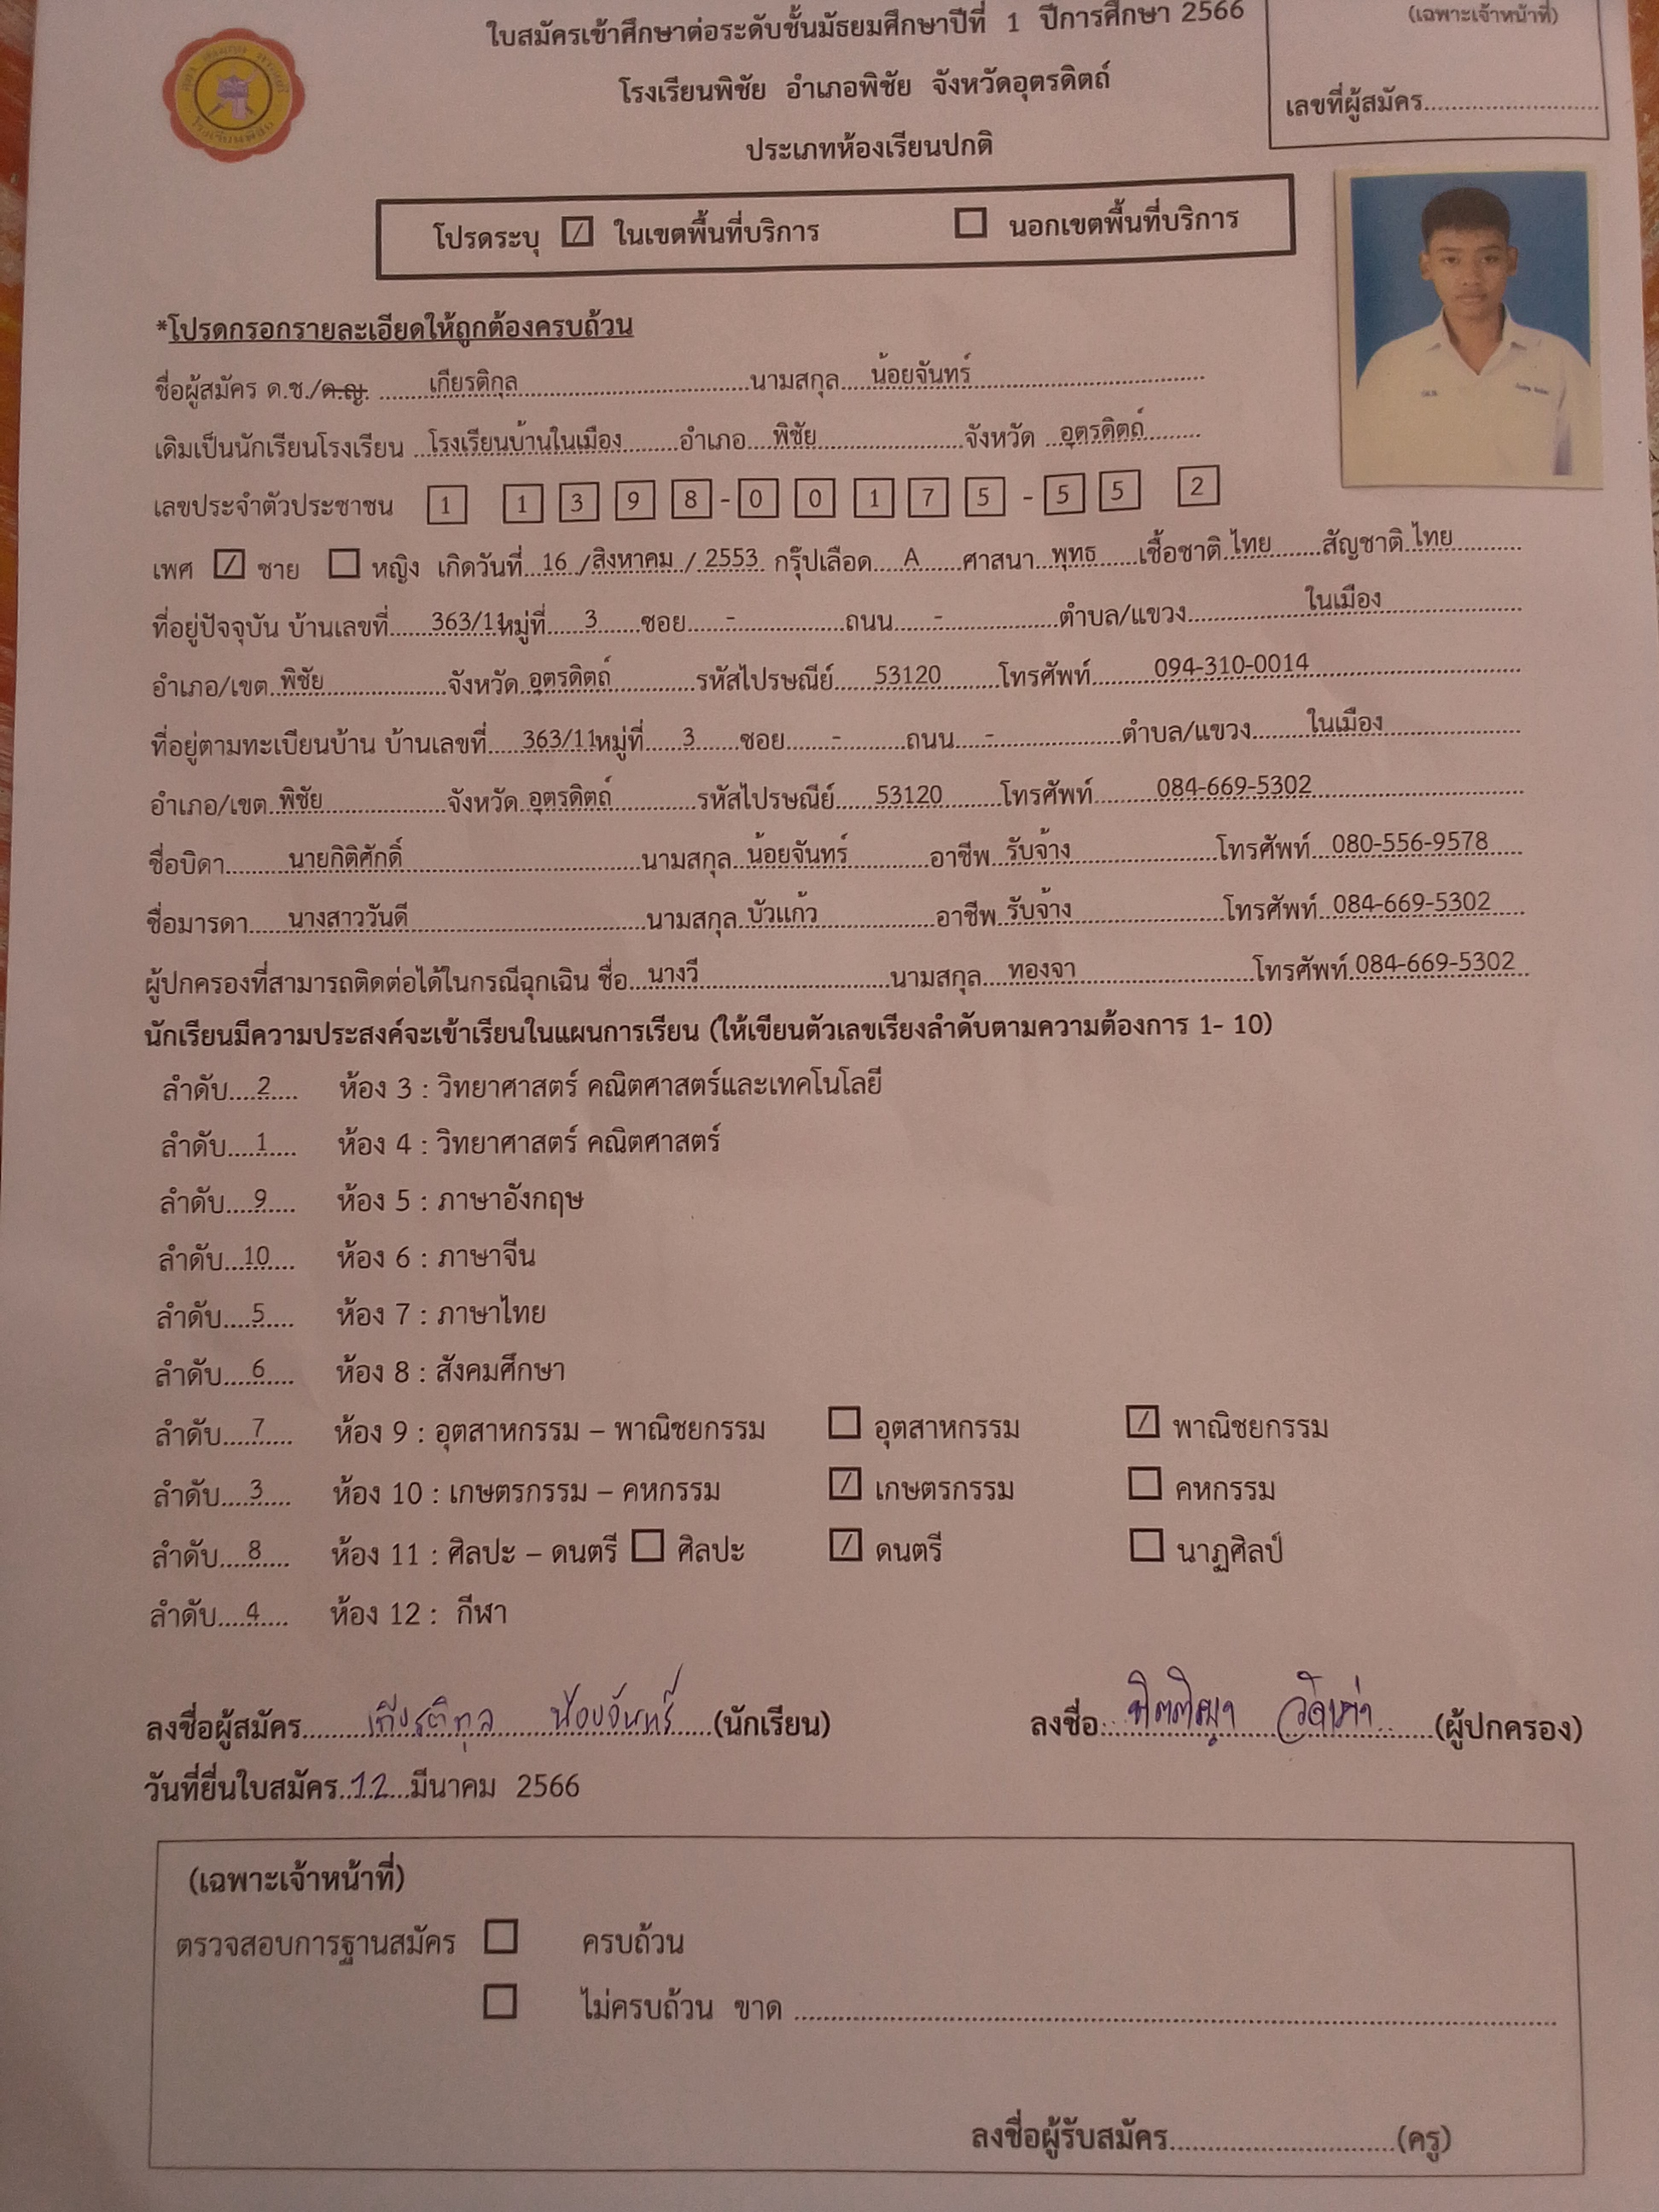 ใบสมัครเข้าศึกษาต่อระดับชั้นมัธยมศึกษาปีที่ 1 ปีการศึกษา 2566
(เฉพาะเจ้าหน้าที่)
โรงเรียนพิชัย อำเภอพิชัย จังหวัดอุตรดิตถ์
เลขที่ผู้สมัคร
ประเภทห้องเรียนปกติ
โรงเรียนพิชัย
โปรดระบุ ☑ ในเขตพื้นที่บริการ ☐ นอกเขตพื้นที่บริการ
*โปรดกรอกรายละเอียดให้ถูกต้องครบถ้วน
ชื่อผู้สมัคร ด.ช./ด.ญ. เกียรติกุล นามสกุล น้อยจันทร์
เดิมเป็นนักเรียนโรงเรียน โรงเรียนบ้านในเมือง อำเภอ พิชัย จังหวัด อุตรดิตถ์
เลขประจำตัวประชาชน 1 1 3 9 8 - 0 0 1 7 5 - 5 5 2
เพศ ☑ ชาย ☐ หญิง เกิดวันที่ 16 / สิงหาคม / 2553 กรุ๊ปเลือด A ศาสนา พุทธ เชื้อชาติ ไทย สัญชาติ ไทย
ที่อยู่ปัจจุบัน บ้านเลขที่ 363/11 หมู่ที่ 3 ซอย - ถนน - ตำบล/แขวง ในเมือง
อำเภอ/เขต พิชัย จังหวัด อุตรดิตถ์ รหัสไปรษณีย์ 53120 โทรศัพท์ 094-310-0014
ที่อยู่ตามทะเบียนบ้าน บ้านเลขที่ 363/11 หมู่ที่ 3 ซอย - ถนน - ตำบล/แขวง ในเมือง
อำเภอ/เขต พิชัย จังหวัด อุตรดิตถ์ รหัสไปรษณีย์ 53120 โทรศัพท์ 084-669-5302
ชื่อบิดา นายกิติศักดิ์ นามสกุล น้อยจันทร์ อาชีพ รับจ้าง โทรศัพท์ 080-556-9578
ชื่อมารดา นางสาววันดี นามสกุล บัวแก้ว อาชีพ รับจ้าง โทรศัพท์ 084-669-5302
ผู้ปกครองที่สามารถติดต่อได้ในกรณีฉุกเฉิน ชื่อ นางวี นามสกุล ทองจา โทรศัพท์ 084-669-5302
นักเรียนมีความประสงค์จะเข้าเรียนในแผนการเรียน (ให้เขียนตัวเลขเรียงลำดับตามความต้องการ 1- 10)
ลำดับ 2 ห้อง 3 : วิทยาศาสตร์ คณิตศาสตร์และเทคโนโลยี
ลำดับ 1 ห้อง 4 : วิทยาศาสตร์ คณิตศาสตร์
ลำดับ 9 ห้อง 5 : ภาษาอังกฤษ
ลำดับ 10 ห้อง 6 : ภาษาจีน
ลำดับ 5 ห้อง 7 : ภาษาไทย
ลำดับ 6 ห้อง 8 : สังคมศึกษา
ลำดับ 7 ห้อง 9 : อุตสาหกรรม – พาณิชยกรรม ☐ อุตสาหกรรม ☑ พาณิชยกรรม
ลำดับ 3 ห้อง 10 : เกษตรกรรม – คหกรรม ☑ เกษตรกรรม ☐ คหกรรม
ลำดับ 8 ห้อง 11 : ศิลปะ – ดนตรี ☐ ศิลปะ ☑ ดนตรี ☐ นาฏศิลป์
ลำดับ 4 ห้อง 12 : กีฬา
ลงชื่อผู้สมัคร เกียรติกุล น้อยจันทร์ (นักเรียน) ลงชื่อ (ผู้ปกครอง)
วันที่ยื่นใบสมัคร 12 มีนาคม 2566
(เฉพาะเจ้าหน้าที่)
ตรวจสอบการฐานสมัคร ☐ ครบถ้วน
☐ ไม่ครบถ้วน ขาด
ลงชื่อผู้รับสมัคร (ครู)